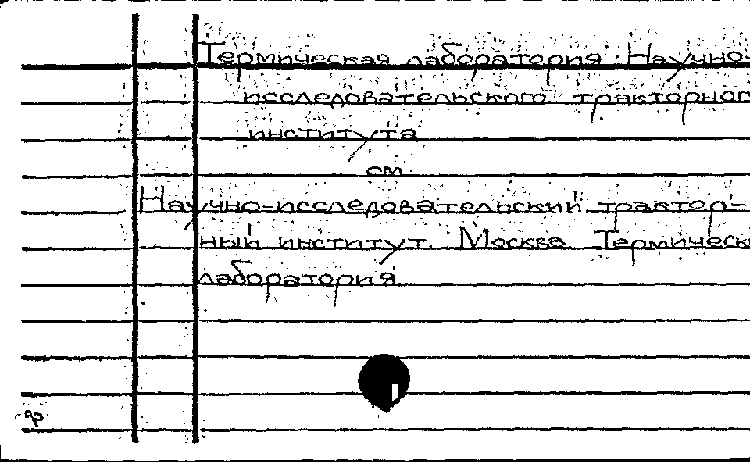 Термическая лаборатория Научно-
исследовательского тракторног
института
см.
Научно-исследовательский трактор-
ный институт. Москва. Термическ
лаборатория.